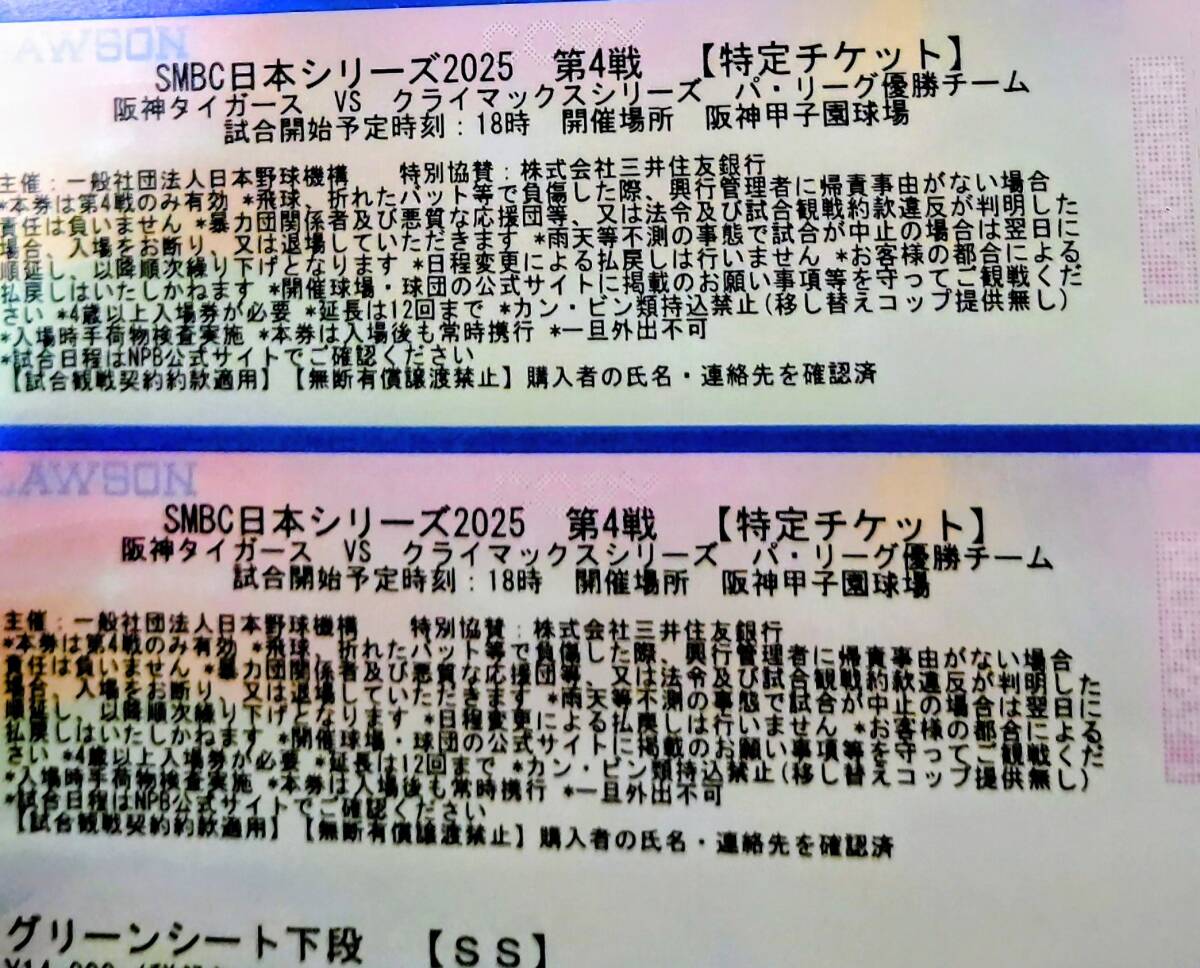 LAWSON
SMBC日本シリーズ2025 第4戦 【特定チケット】
阪神タイガース VS クライマックスシリーズ パ・リーグ優勝チーム
試合開始予定時刻:18時 開催場所 阪神甲子園球場
主催:一般社団法人日本野球機構 特別協賛:株式会社三井住友銀行
*本券は第4戦のみ有効 *飛球、折れたバット等で負傷した際、興行管理者に帰責事由がない場合
責任は負いません *暴力団関係者及び悪質な応援団等、又は法令及び試合観戦約款違反が判明した
場合、入場をお断り、又は退場していただきます *雨天等不測の事態で試合が中止の場合は翌日に
順延し、以降順次繰り下げとなります *日程変更による払戻しは行いません *お客様の都合による
払戻しはいたしかねます *開催球場・球団の公式サイトに掲載のお願い事項等を守ってご観戦くだ
さい *4歳以上入場券が必要 *延長は12回まで *カン・ビン類持込禁止(移し替えコップ提供無し)
*入場時手荷物検査実施 *本券は入場後も常時携行 *一旦外出不可
*試合日程はNPB公式サイトでご確認ください
【試合観戦契約約款適用】【無断有償譲渡禁止】購入者の氏名・連絡先を確認済
LAWSON
SMBC日本シリーズ2025 第4戦 【特定チケット】
阪神タイガース VS クライマックスシリーズ パ・リーグ優勝チーム
試合開始予定時刻:18時 開催場所 阪神甲子園球場
主催:一般社団法人日本野球機構 特別協賛:株式会社三井住友銀行
*本券は第4戦のみ有効 *飛球、折れたバット等で負傷した際、興行管理者に帰責事由がない場合
責任は負いません *暴力団関係者及び悪質な応援団等、又は法令及び試合観戦約款違反が判明した
場合、入場をお断り、又は退場していただきます *雨天等不測の事態で試合が中止の場合は翌日に
順延し、以降順次繰り下げとなります *日程変更による払戻しは行いません *お客様の都合による
払戻しはいたしかねます *開催球場・球団の公式サイトに掲載のお願い事項等を守ってご観戦くだ
さい *4歳以上入場券が必要 *延長は12回まで *カン・ビン類持込禁止(移し替えコップ提供無し)
*入場時手荷物検査実施 *本券は入場後も常時携行 *一旦外出不可
*試合日程はNPB公式サイトでご確認ください
【試合観戦契約約款適用】【無断有償譲渡禁止】購入者の氏名・連絡先を確認済
グリーンシート下段 【SS】